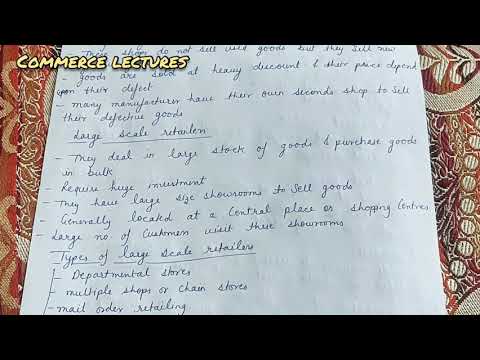 COMMERCE LECTURES
- These shops do not sell used goods but they sell new
- goods are sold at heavy discount & their price depend
upon their defect
- many manufacturer have their own seconds shop to sell
their defective goods
Large scale retailers
- They deal in large stock of goods & purchase goods
in bulk
- Require huge investment
- They have large size showrooms to sell goods
- Generally located at a central place or shopping centres
- Large no. of customers visit these showrooms
Types of large scale retailers
- Departmental stores
- multiple shops or chain stores
- mail order retailing